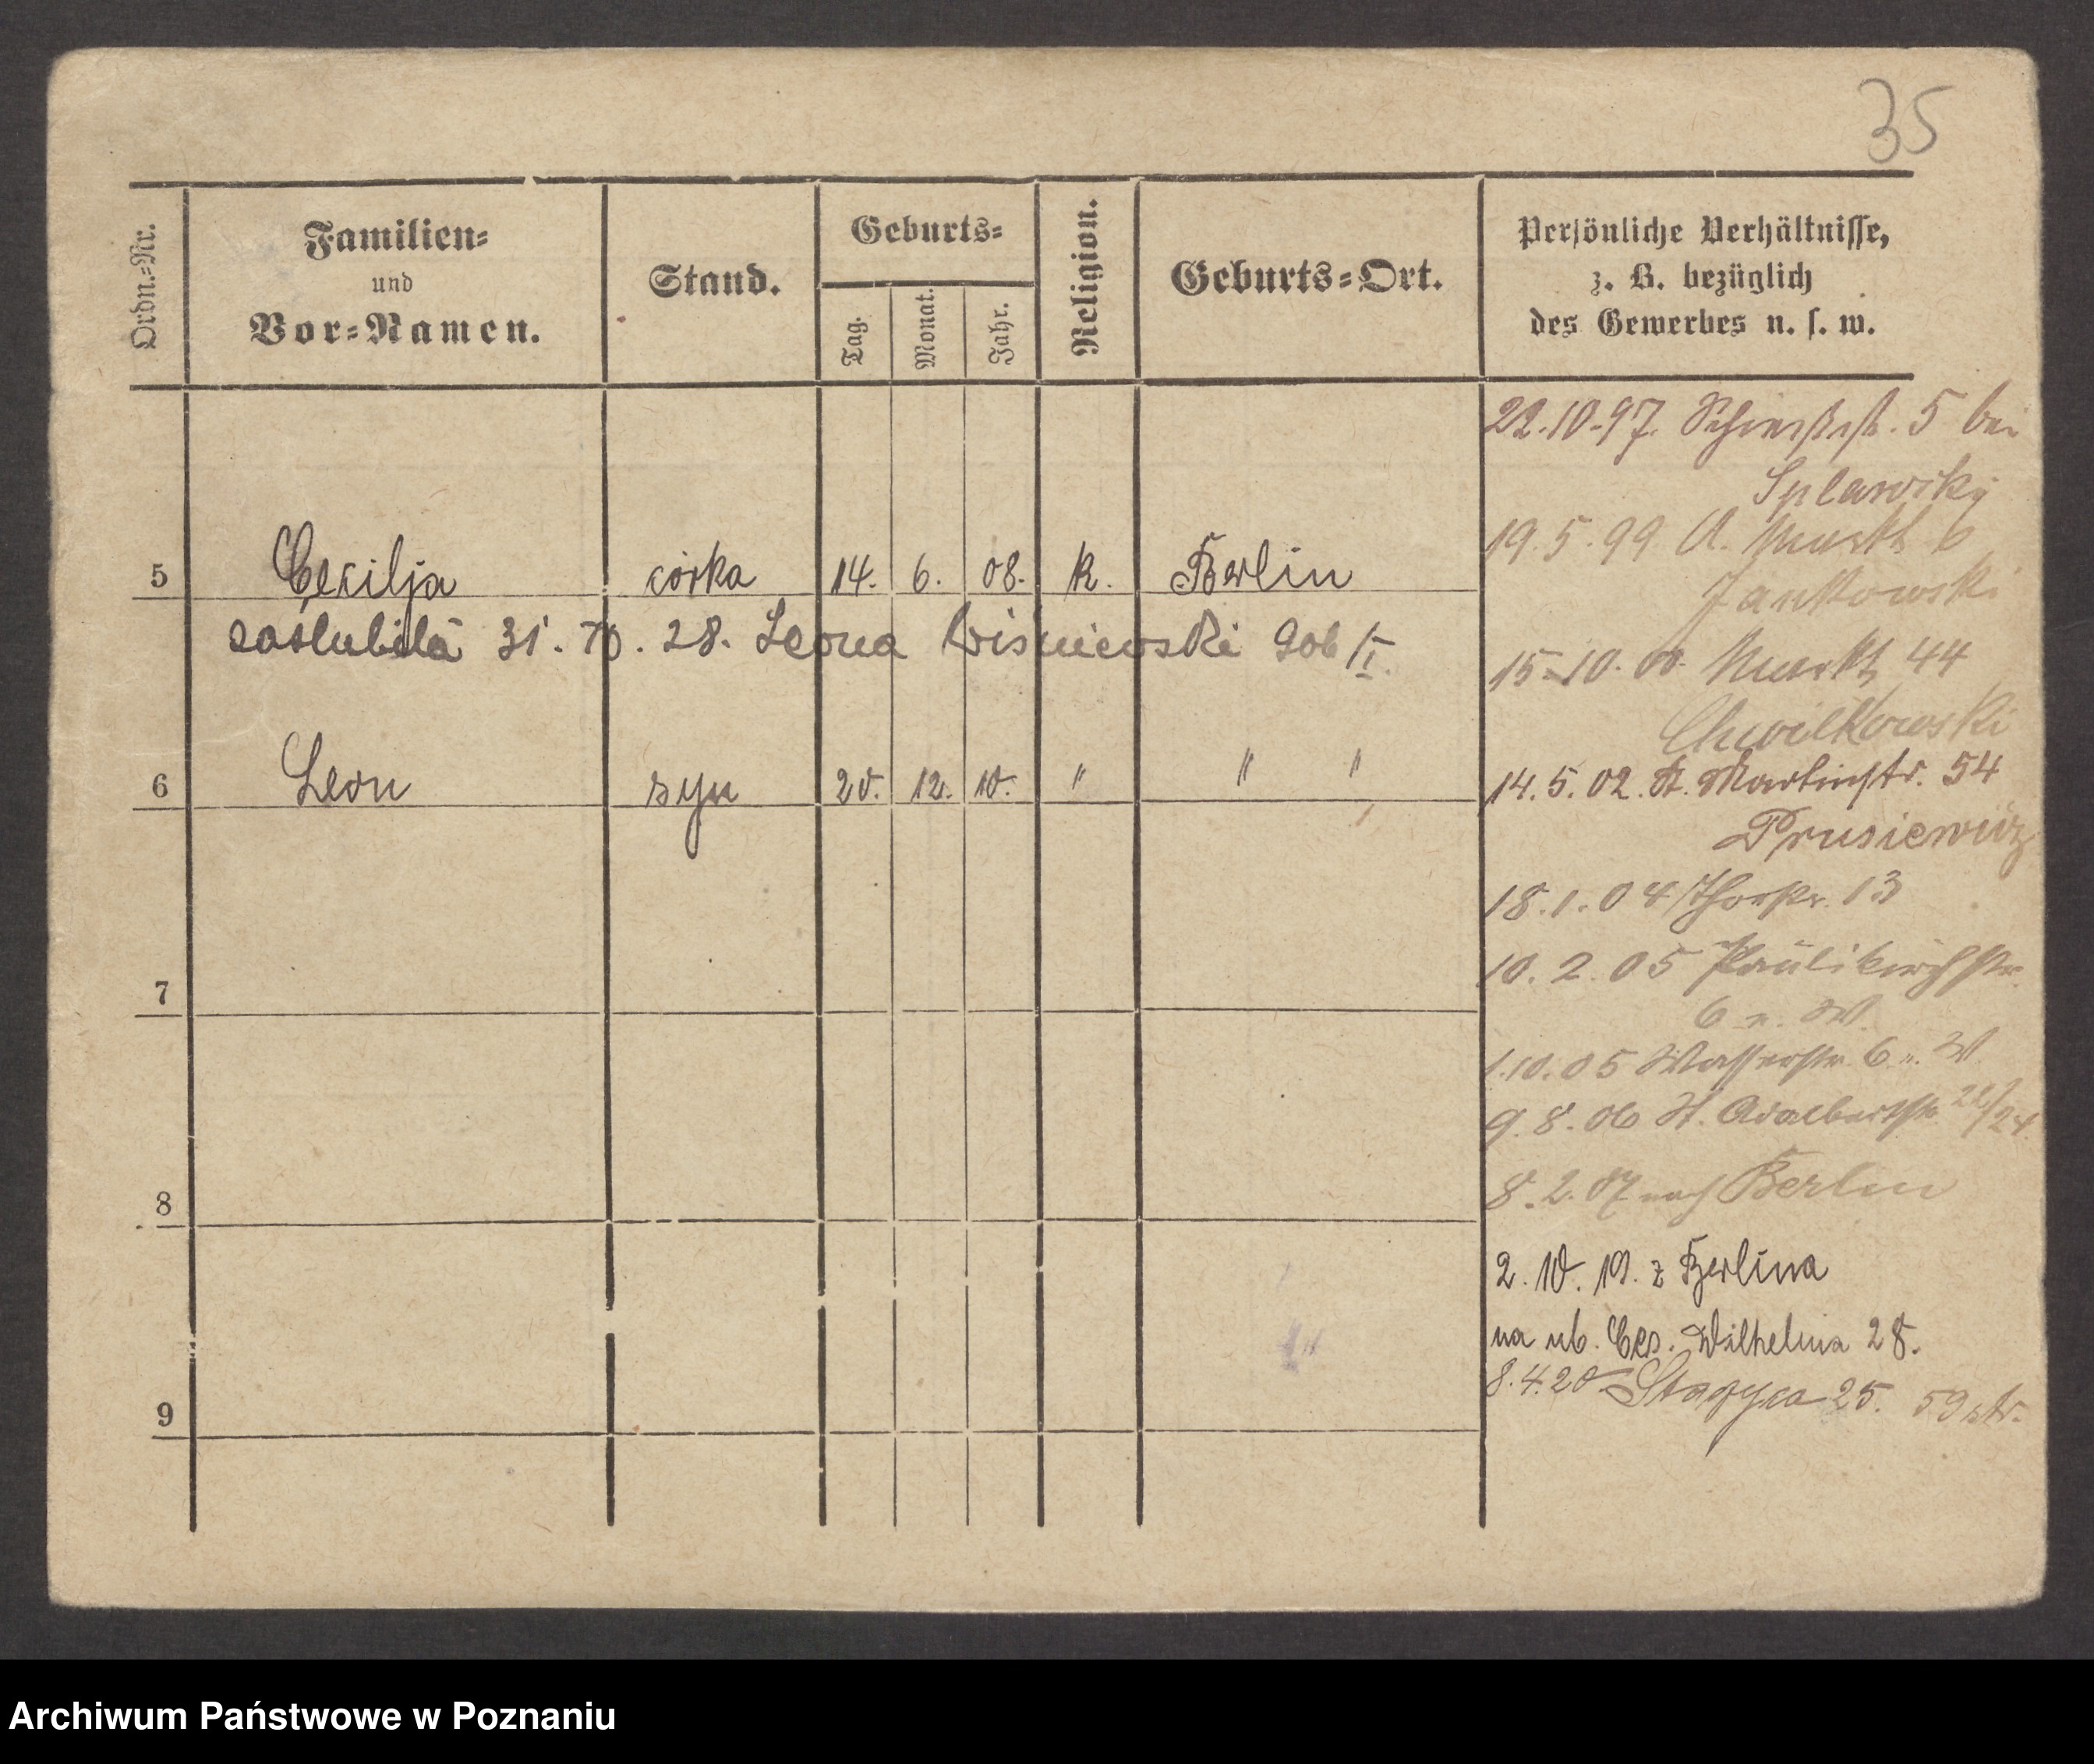 35
Ordn.-Nr.
Familien-
und
Vor-Namen.
Stand.
Geburts-
Tag.
Monat.
Jahr.
Religion.
Geburts-Ort.
Persönliche Verhältnisse,
z. B. bezüglich
des Gewerbes u. s. w.
22.10.97. 5 bei
Splawsky
19.5.99 A. Markt 6
Jankowski
5 Cecilja córka 14. 6. 08. k. Berlin
zaślubiła 31.10.28. Leona Wiśniewski
15.10.00. Markt 44
Chwilkowski
6 Leon syn 20. 12. 10. " " "
14.5.02. St. Martinstr. 54
Prusiewicz
18.1.04 Thorstr. 13
10.2.05 Paulikirchstr.
7
6 n. W.
1.10.05 Wasserstr. 6 n. W.
9.8.06 St. Adalbertstr.
8
8.2.07 nach Berlin
2.10.19. z Berlina
na ub. Ces. Wilhelma 28.
8.4.20 25.
9
Archiwum Państwowe w Poznaniu